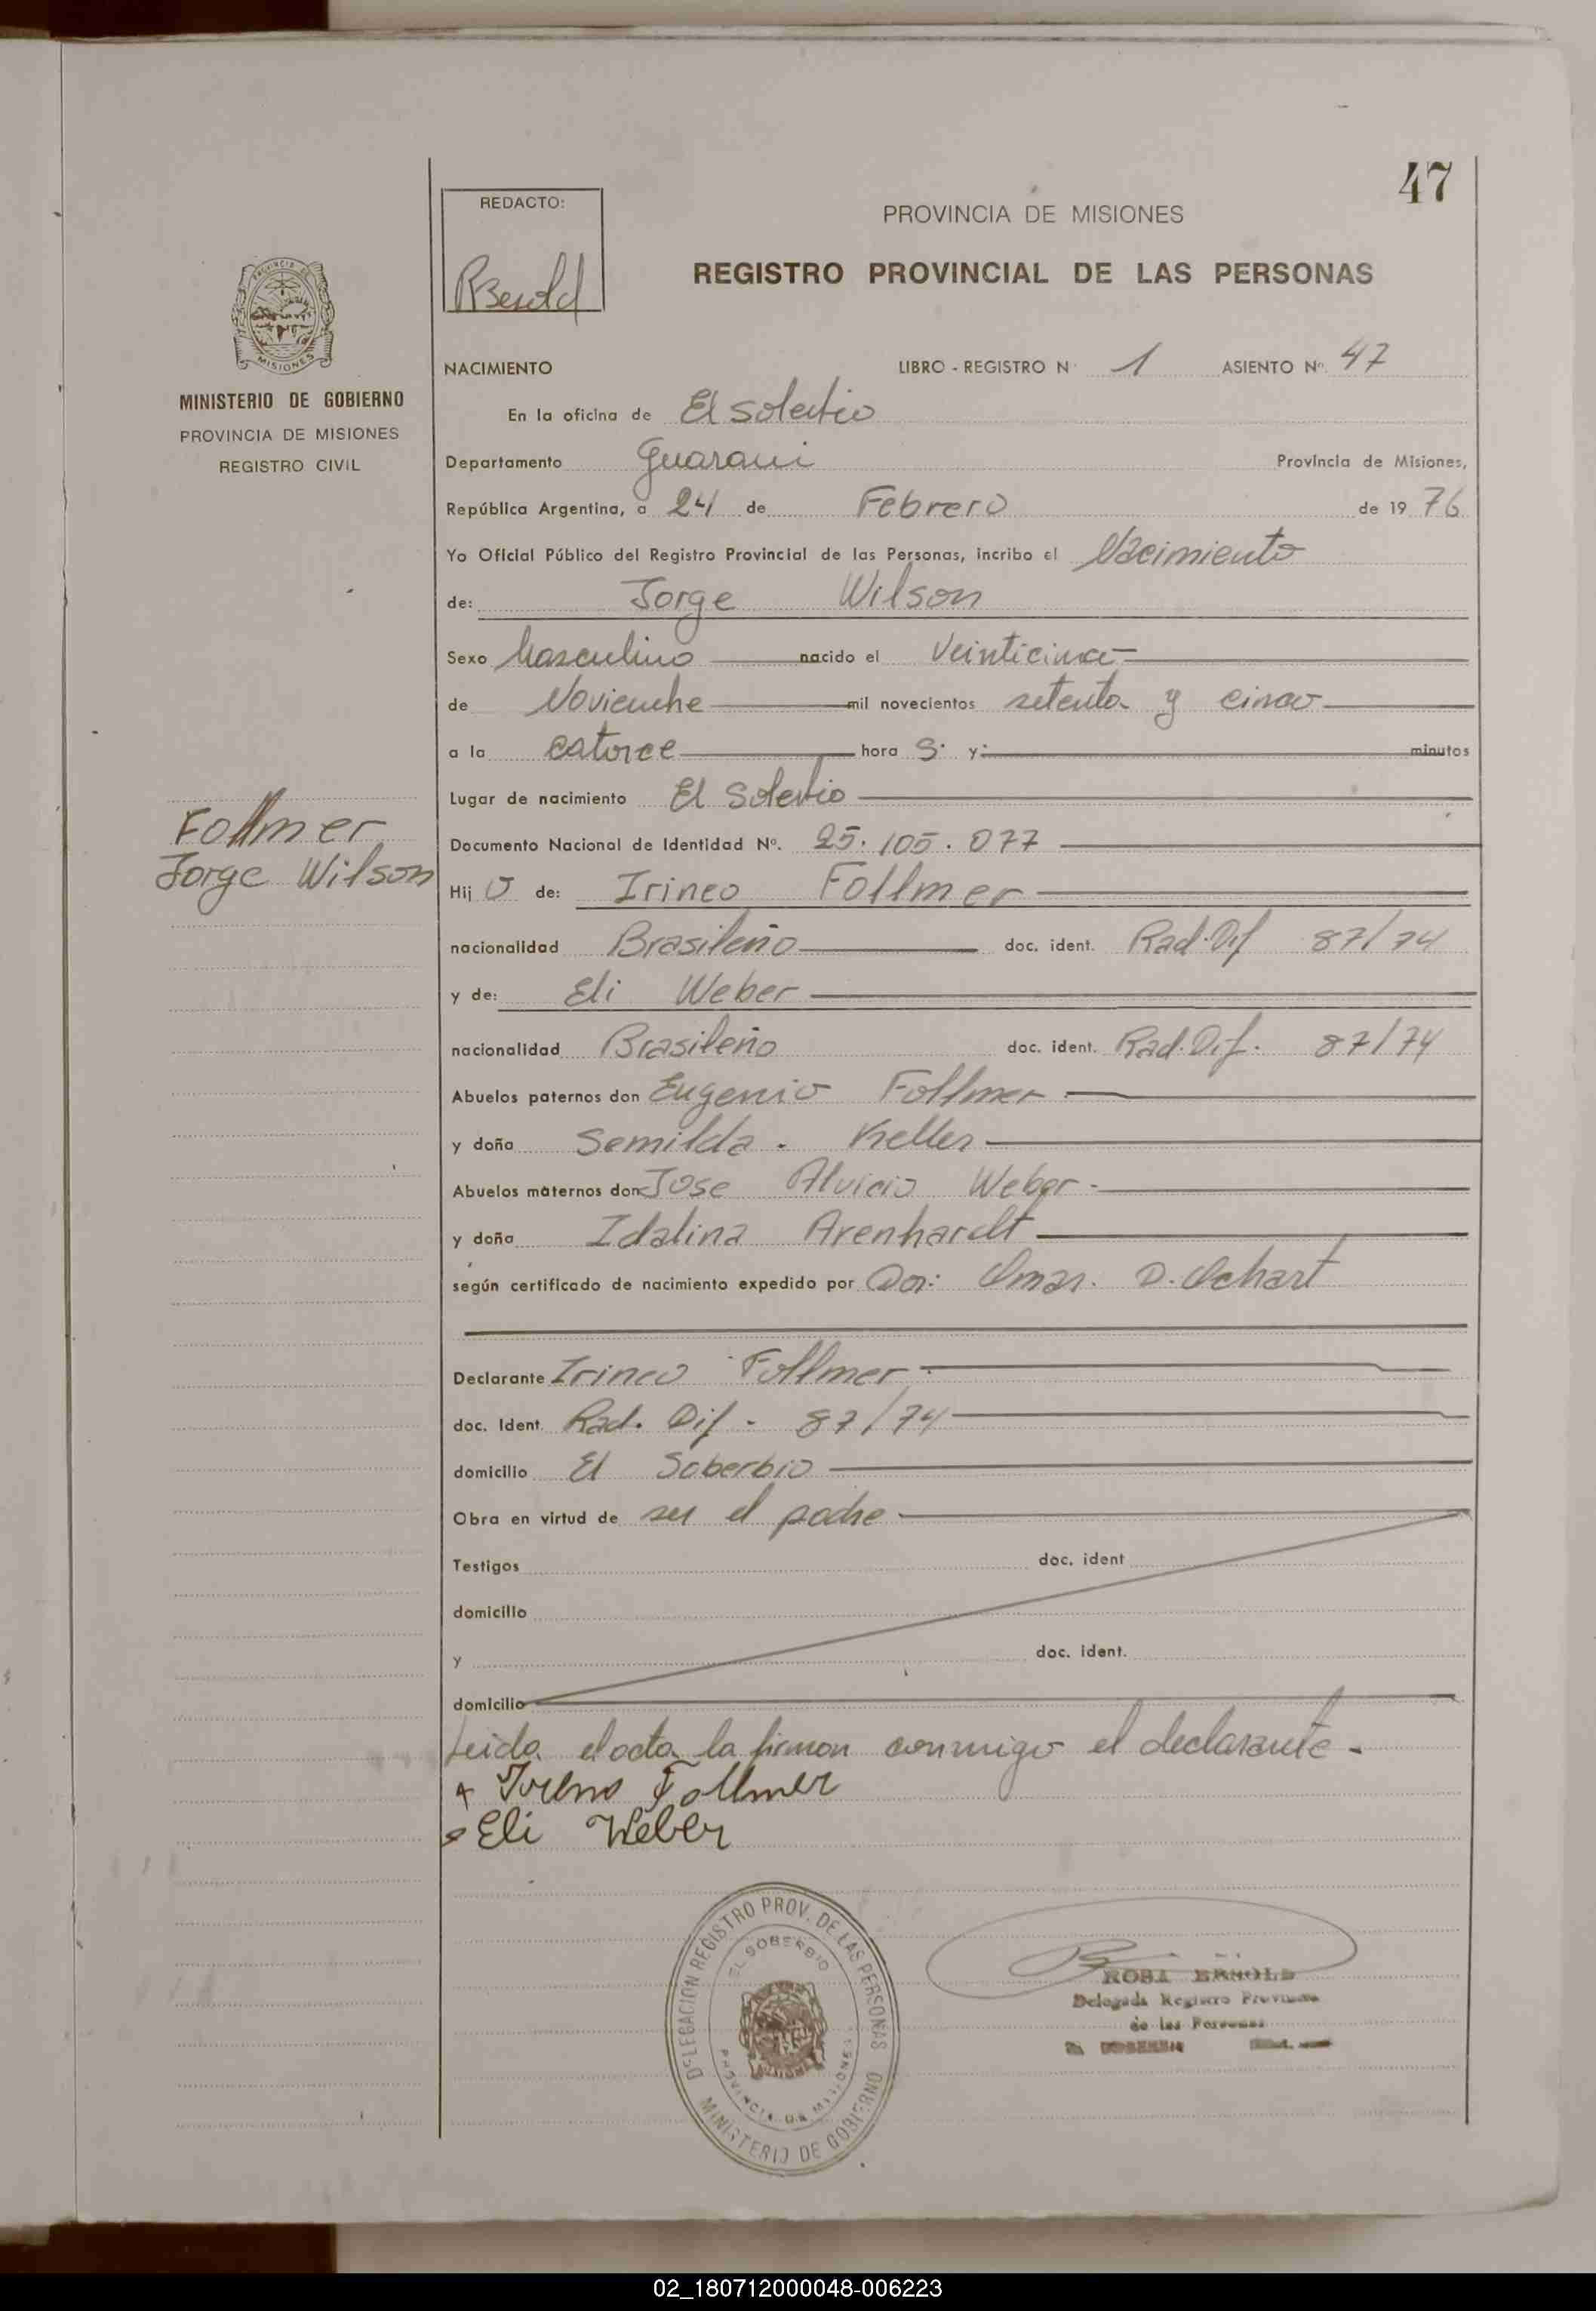 47
REDACTO:
PROVINCIA DE MISIONES
REGISTRO PROVINCIAL DE LAS PERSONAS
MISIONES
MINISTERIO DE GOBIERNO
PROVINCIA DE MISIONES
REGISTRO CIVIL
NACIMIENTO LIBRO - REGISTRO N 1 ASIENTO Nº. 47
En la oficina de El
Departamento Guarani Provincia de Misiones,
República Argentina, a 24 de Febrero de 19 76
Yo Oficial Público del Registro Provincial de las Personas, incribo el Nacimiento
de: Jorge Wilson
Sexo Masculino nacido el Veinticinco
de Noviembre mil novecientos setenta y cinco
a la catorce hora S. y: minutos
Lugar de nacimiento El
Follmer
Jorge Wilson
Documento Nacional de Identidad Nº. 25.105.077
Hij o de: Irineo Follmer
nacionalidad Brasileño doc. ident. Rad. Dif 87/74
y de: Eli Weber
nacionalidad Brasileño doc. ident. Rad. Dif. 87/74
Abuelos paternos don Eugenio Follmer
y doña Semilda. Keller
Abuelos maternos don Jose Alvicio Weber.
y doña Idalina Arenhardt
según certificado de nacimiento expedido por Omar. D.
Declarante Irineo Follmer
doc. Ident. Rad. Dif. 87/74
domicilio El Soberbio
Obra en virtud de ser el padre
Testigos doc. ident
domicilio
y doc. ident.
domicilio
Leida el acta la firman conmigo el declarante.
Follmer
Eli Weber
DELEGACION REGISTRO PROV. DE LAS PERSONAS
EL SOBERBIO
PROVINCIA DE MISIONES
MINISTERIO DE GOBIERNO
ROSA
Delegada Registro
de las Personas
02_180712000048-006223